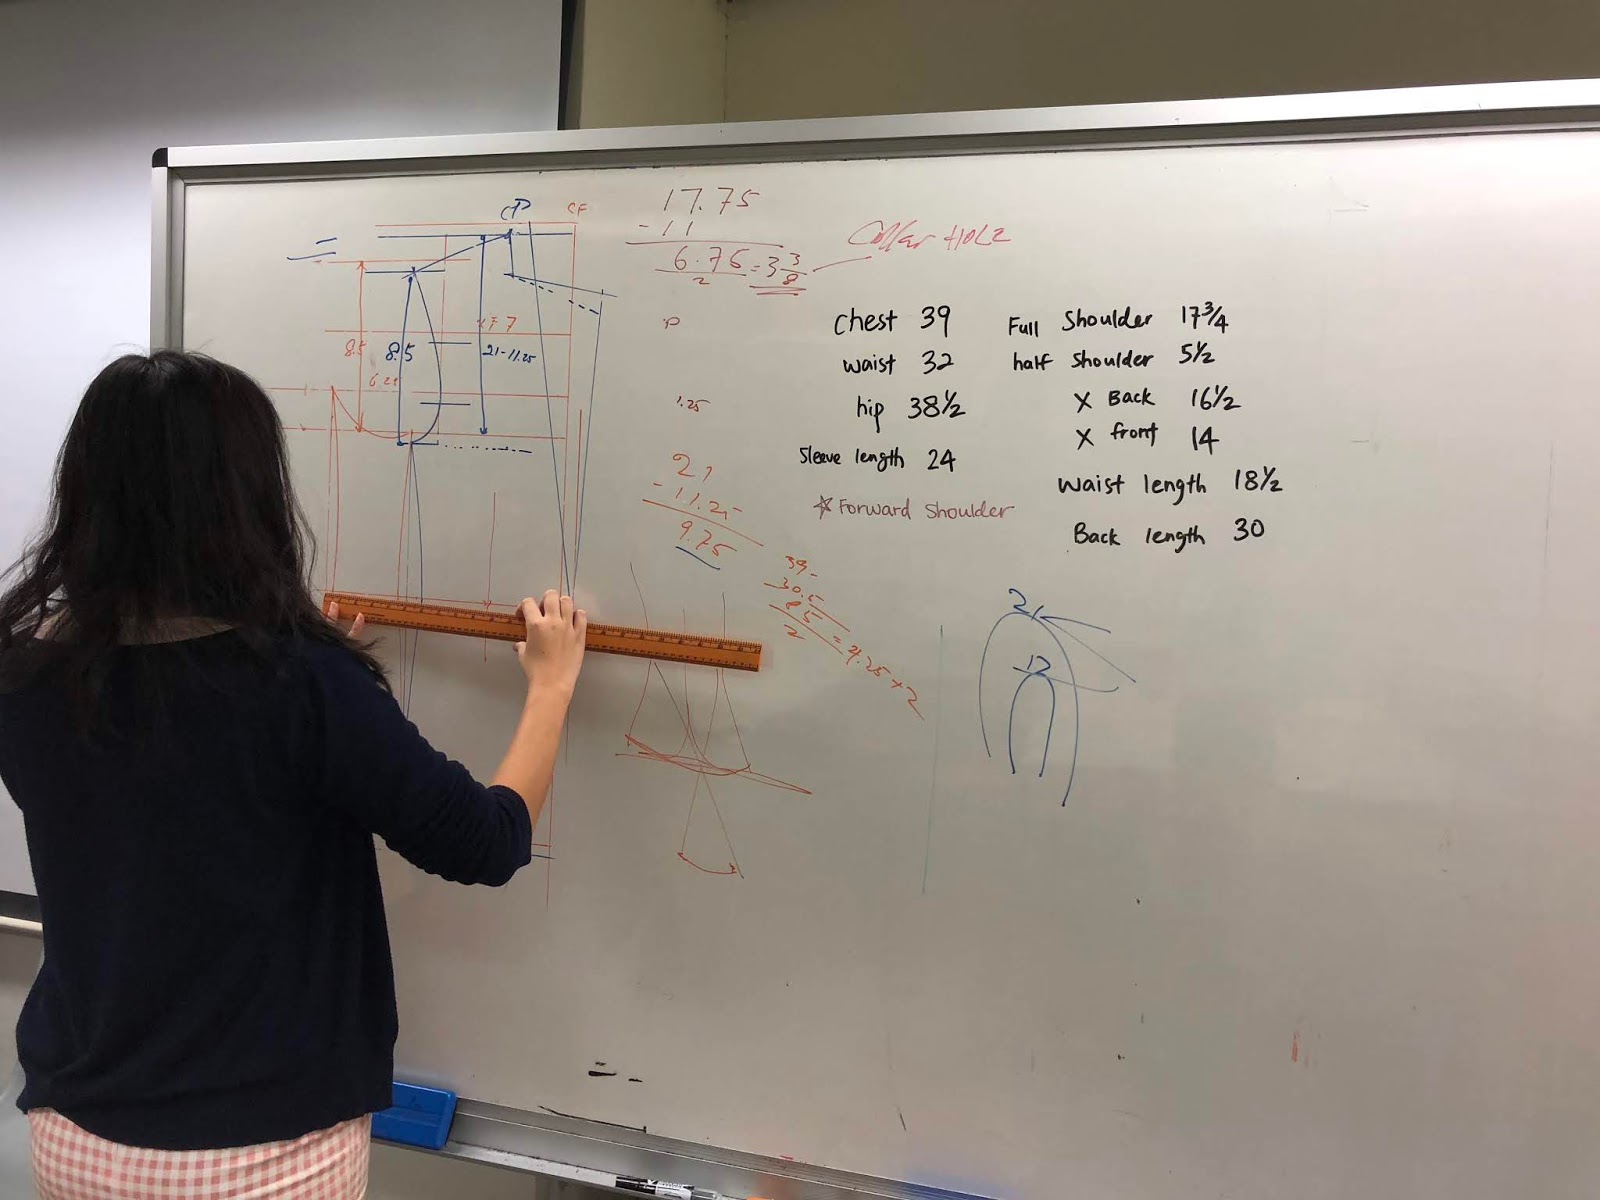 CP CF
17.75
-11
6.75 = 3 3/8
2
Collar HOLE
17 7
8.5 8.5 21-11.25
1.25
chest 39
waist 32
hip 38½
Sleeve length 24
☆ Forward Shoulder
Full Shoulder 17¾
half shoulder 5½
X Back 16½
X front 14
Waist length 18½
Back length 30
21
9.75
39
30.5
8.5 = 4.25 + 2
2
21
12